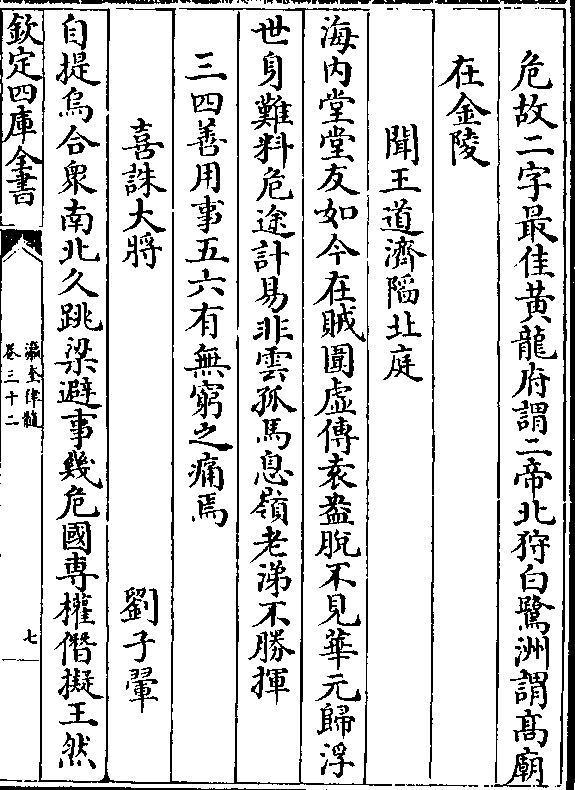 危故二字最佳黄龍府謂二帝北狩白鷺洲謂髙廟
在金陵
聞王道濟䧟北庭
海内堂堂友如今在賊圍虚傳袁盎脫不見華元歸浮
世身難料危途計易非雲孤馬息嶺老涕不勝揮
三四善用事五六有無窮之痛焉
喜誅大將 劉子翬
自提烏合衆南北久跳梁避事幾危國専權僭擬王然
欽定四庫全書
瀛奎律髓
卷三十二
七